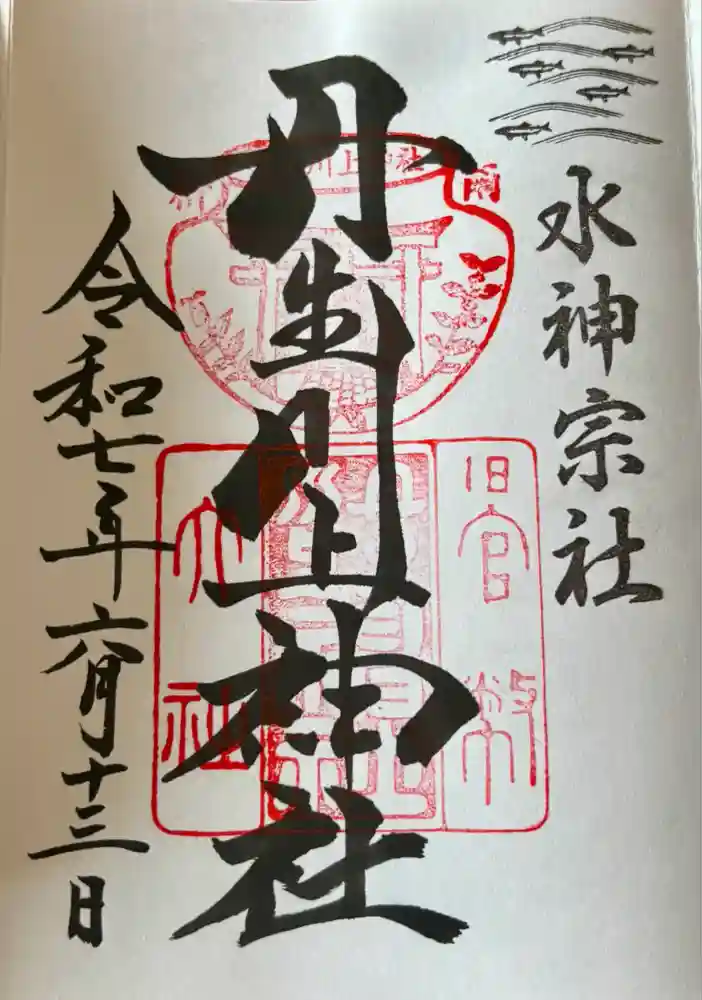 水神宗社
丹生川上神社
旧官幣
大社
令和七年六月十三日